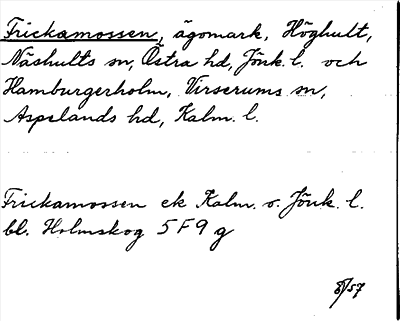 Frickamossen, ägomark, Höghult,
Näshults sn, Östra hd, Jönk. l. och
Hamburgerholm, Virserums sn,
Aspelands hd, Kalm. l.
Frickamossen ek Kalm. o. Jönk. l.
bl. Holmskog 5F9 g